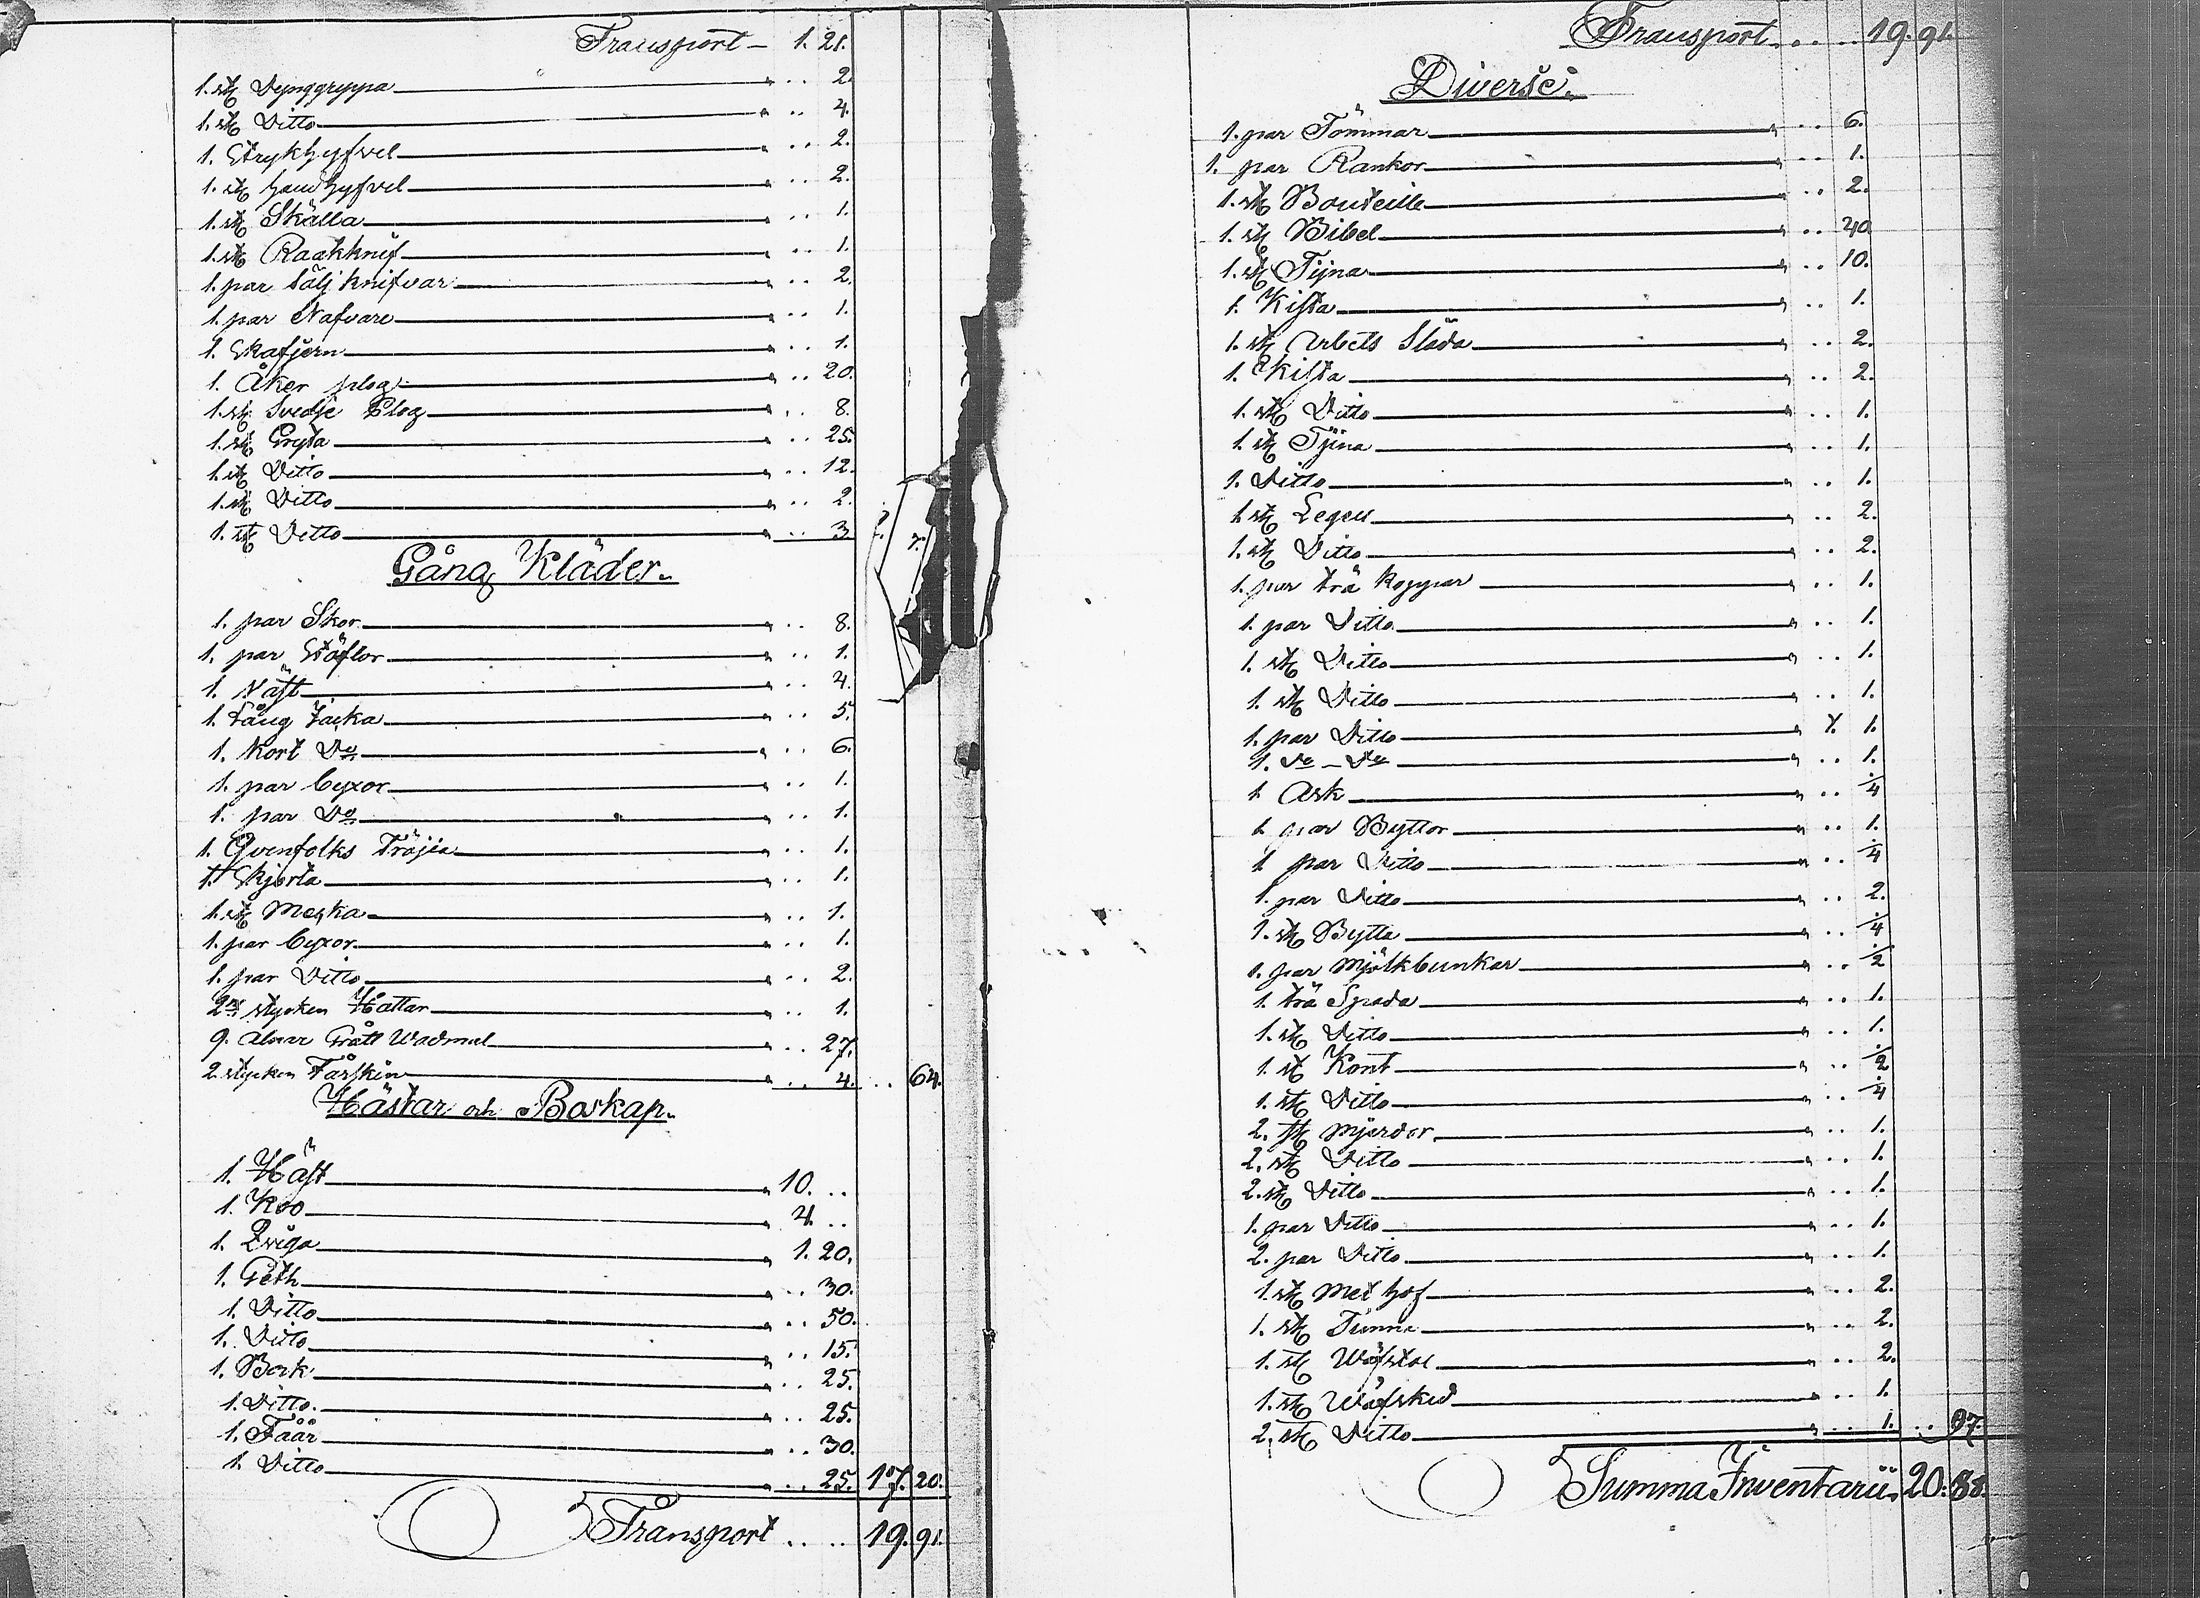 Transport 1. 21.
1. st Dynggryppa .. 2.
1. st Ditto .. 4.
1. Strykhyfvel .. 2.
1. st handhyfvel .. 2.
1. st Skälla .. 1.
1. st Raakknif .. 1.
1. par Tälj knifvar .. 2.
1. par Nafvare .. 1.
1. Skafjern .. 1.
1. Åker plog .. 20.
1. st Svedje Plog .. 8.
1. st Gryta .. 25.
1. st Ditto .. 12.
1. st Ditto .. 2.
1. st Ditto .. 3
Gång Kläder.
1. par Skor .. 8.
1. par Stöflor .. 1.
1. Väst .. 4.
1. Lång Jacka .. 5.
1. Kort Do .. 6.
1. par Byxor .. 1.
1. par Do .. 1.
1. Qvenfolks Tröjia .. 1.
1. Skjorta .. 1.
1. st .. 1.
1. par Byxor .. 1.
1. par Ditto .. 2.
2ne stycken Hattar .. 1.
9. alnar Grått Wadmal .. 27.
2 stycken Fårskin .. 4. .. 64.
Hästar och Boskap.
1. Häst 10. ..
1. Koo 4. ..
1. Qviga 1. 20.
1. Geth .. 30.
1. Ditto .. 50.
1. Ditto .. 15.
1. Bock .. 25.
1. Ditto. .. 25.
1. Fåår .. 30.
1. Ditto .. 25. 17. 20.
Transport .. .. 19. 91.
Transport .. .. 19. 91.
Diverse.
1. par Tömmar .. 6.
1. par Rankor .. 1.
1. st Bouteille .. 2.
1. st Bibel .. 40.
1. st Tijna .. 10.
1. Kista .. 1.
1. st Arbets Släda .. 2.
1. Kista .. 2.
1. st Ditto .. 1.
1. st Tijna .. 1.
1. Ditto .. 1.
1 st Legell .. 2.
1. st Ditto .. 2.
1. par trä Koppar .. 1.
1. par Ditto .. 1.
1. st Ditto .. 1.
1. st Ditto .. 1.
1. par Ditto 1.
1. Do _ Do .. 1.
1 Ask .. ¼
1 par Byttor .. 1.
1 par Ditto .. ¼
1. par Ditto .. 2.
1. st Bytta .. ¼
1. par Mjölkbunkar .. ½
1. trä Spada .. 1.
1. st Ditto .. 1.
1. st Kont .. ½
1. st Ditto .. ¼
2. st Mjerdor .. 1.
2. st Ditto .. 1.
2. st Ditto .. 1.
1. par Ditto .. 1.
2. par Ditto .. 1.
1. st .. 2.
1. st Tunna .. 2.
1. st Wäfstol .. 2.
1. st Wäfsked .. 1.
2. st Ditto .. 1. .. 97.
Summa Inventarii. 20. 88.